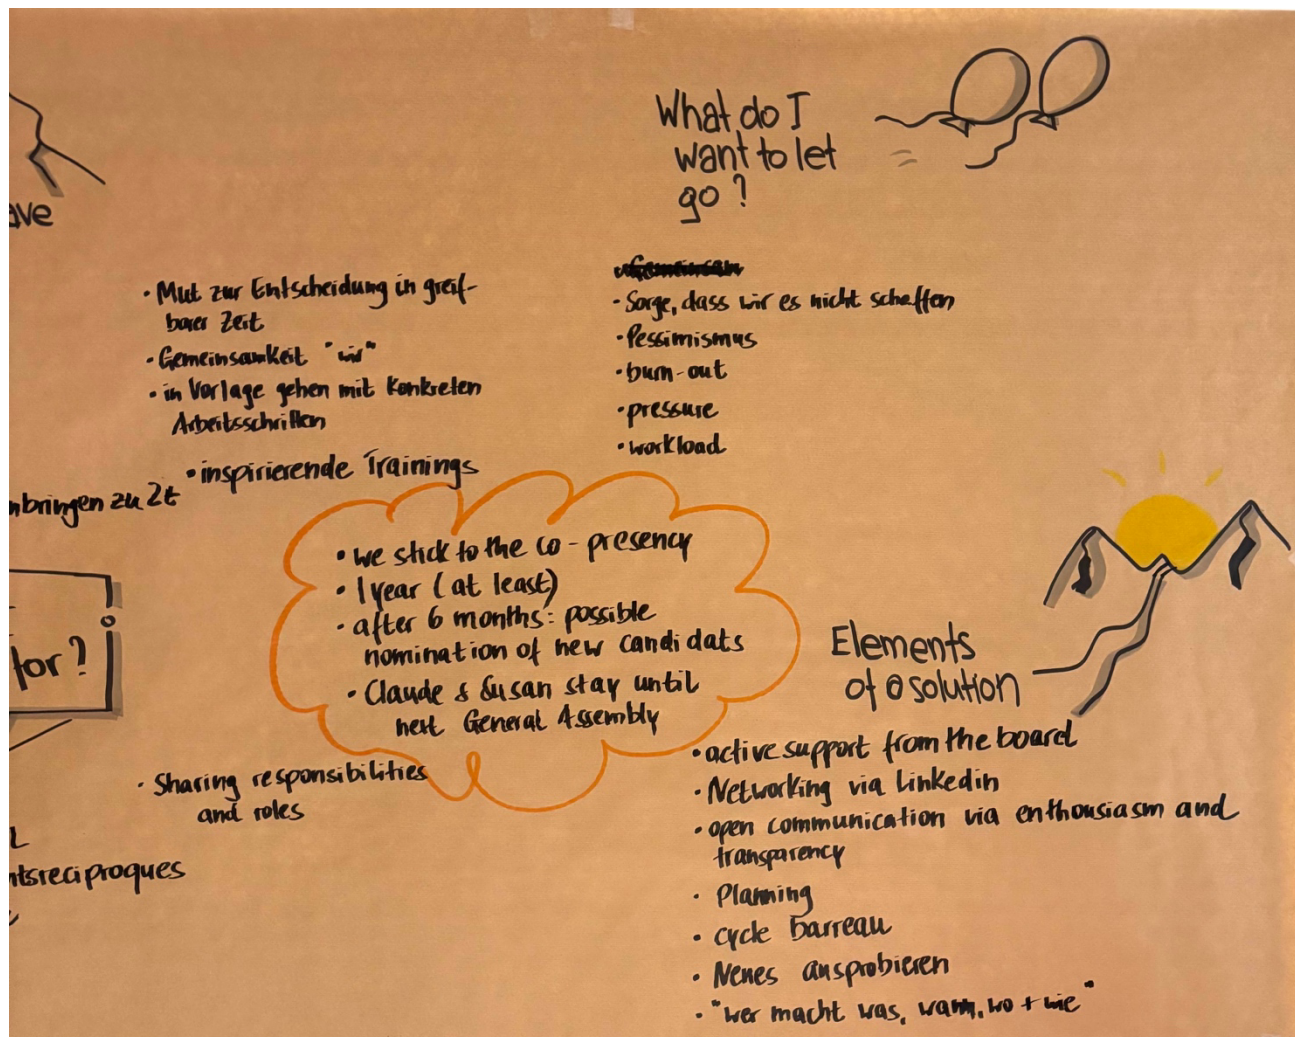 What do I
want to let
go?
ave
· Mut zur Entscheidung in greif-
barer Zeit
· Gemeinsamkeit "wir"
· in Vorlage gehen mit konkreten
Arbeitsschritten
· inspirierende Trainings
nbringen zu 2t
· Sorge, dass wir es nicht schaffen
· Pessimismus
· burn-out
· pressure
· workload
for?
· we stick to the co-presency
· 1 year (at least)
· after 6 months: possible
nomination of new candidats
· Claude & Susan stay until
next General Assembly
· Sharing responsibilities
and roles
ntsreciproques
Elements
of a solution
· active support from the board
· Networking via Linkedin
· open communication via enthousiasm and
transparency
· Planning
· cycle barreau
· Neues ausprobieren
· "wer macht was, wann, wo + wie"